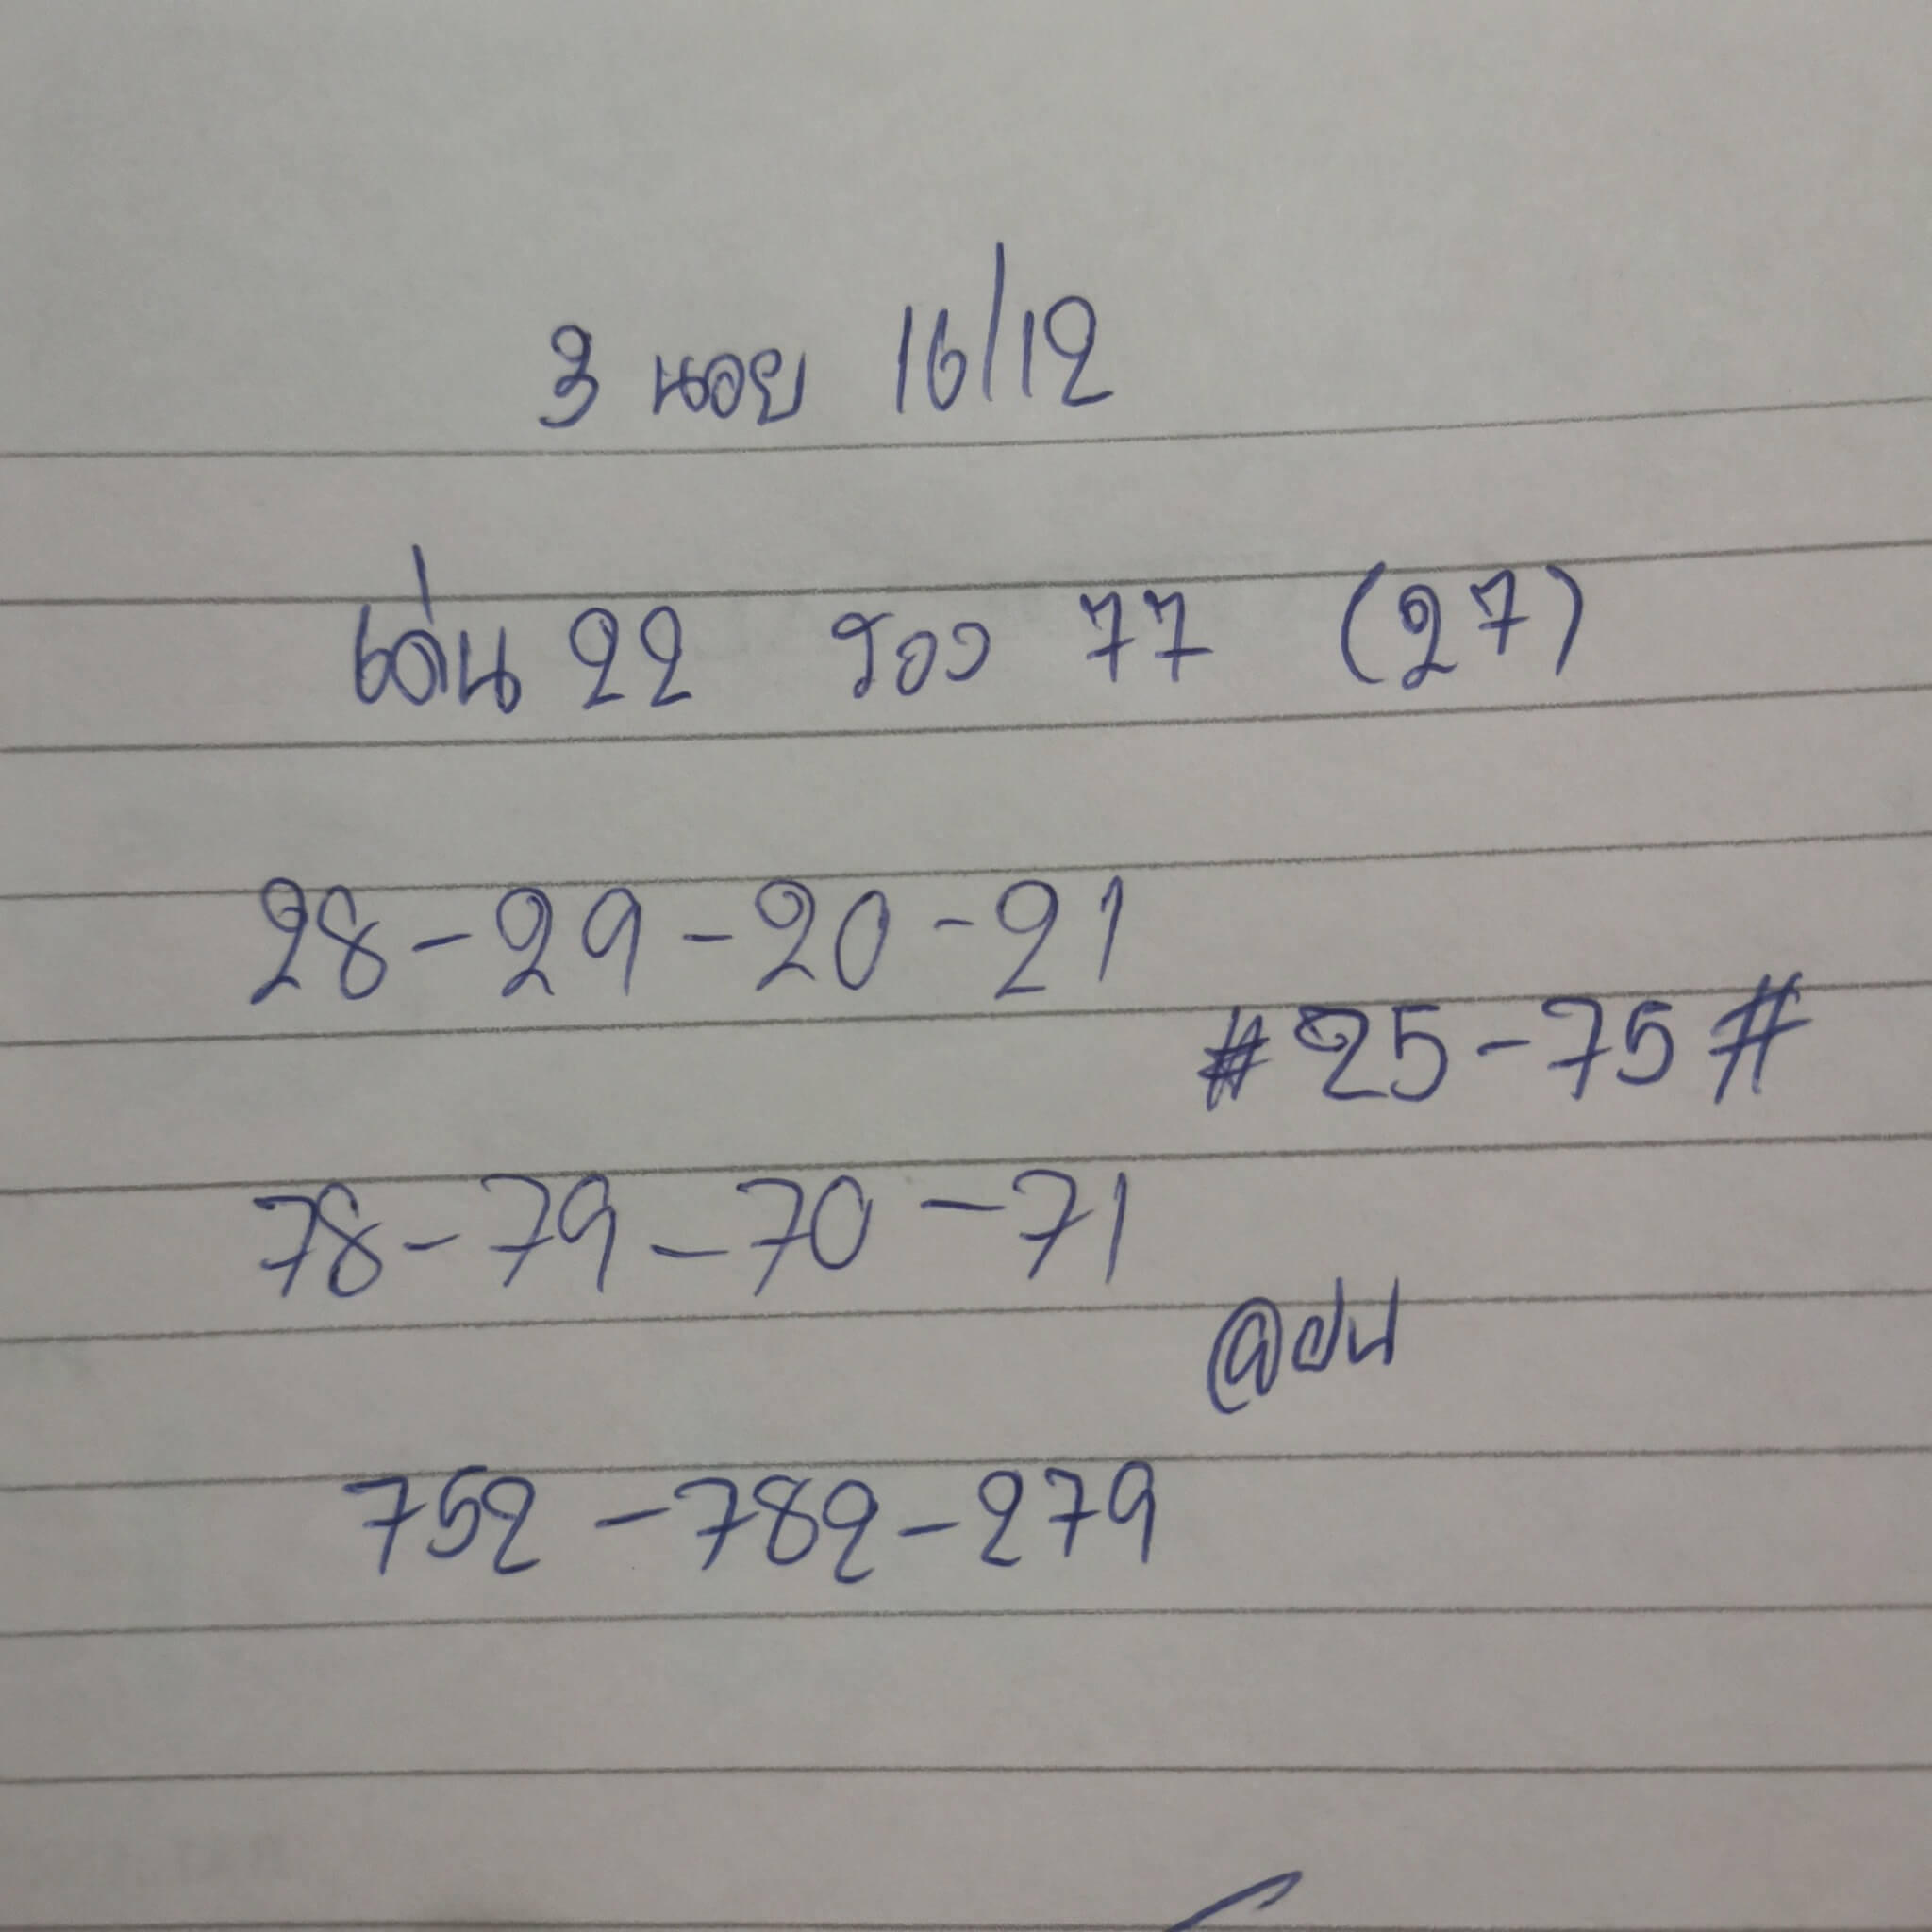 3 นอย 16/12
เด่น 22 รอง 77 (27)
28-29-20-21
#25-75#
78-79-70-71
@ฝน
752-782-279